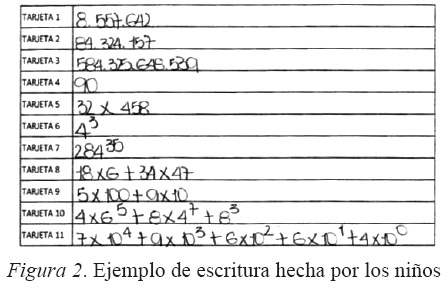 TARJETA 1 8.557.642
TARJETA 2 84.324.157
TARJETA 3 584.325.648.539
TARJETA 4 90
TARJETA 5 32 x 458
TARJETA 6 4³
TARJETA 7 284³⁵
TARJETA 8 18x6 + 34x47
TARJETA 9 5x100+9x10
TARJETA 10 4x6⁵+8x4⁷+8³
TARJETA 11 7x10⁴+9x10³+6x10²+6x10¹+4x10⁰
Figura 2. Ejemplo de escritura hecha por los niños